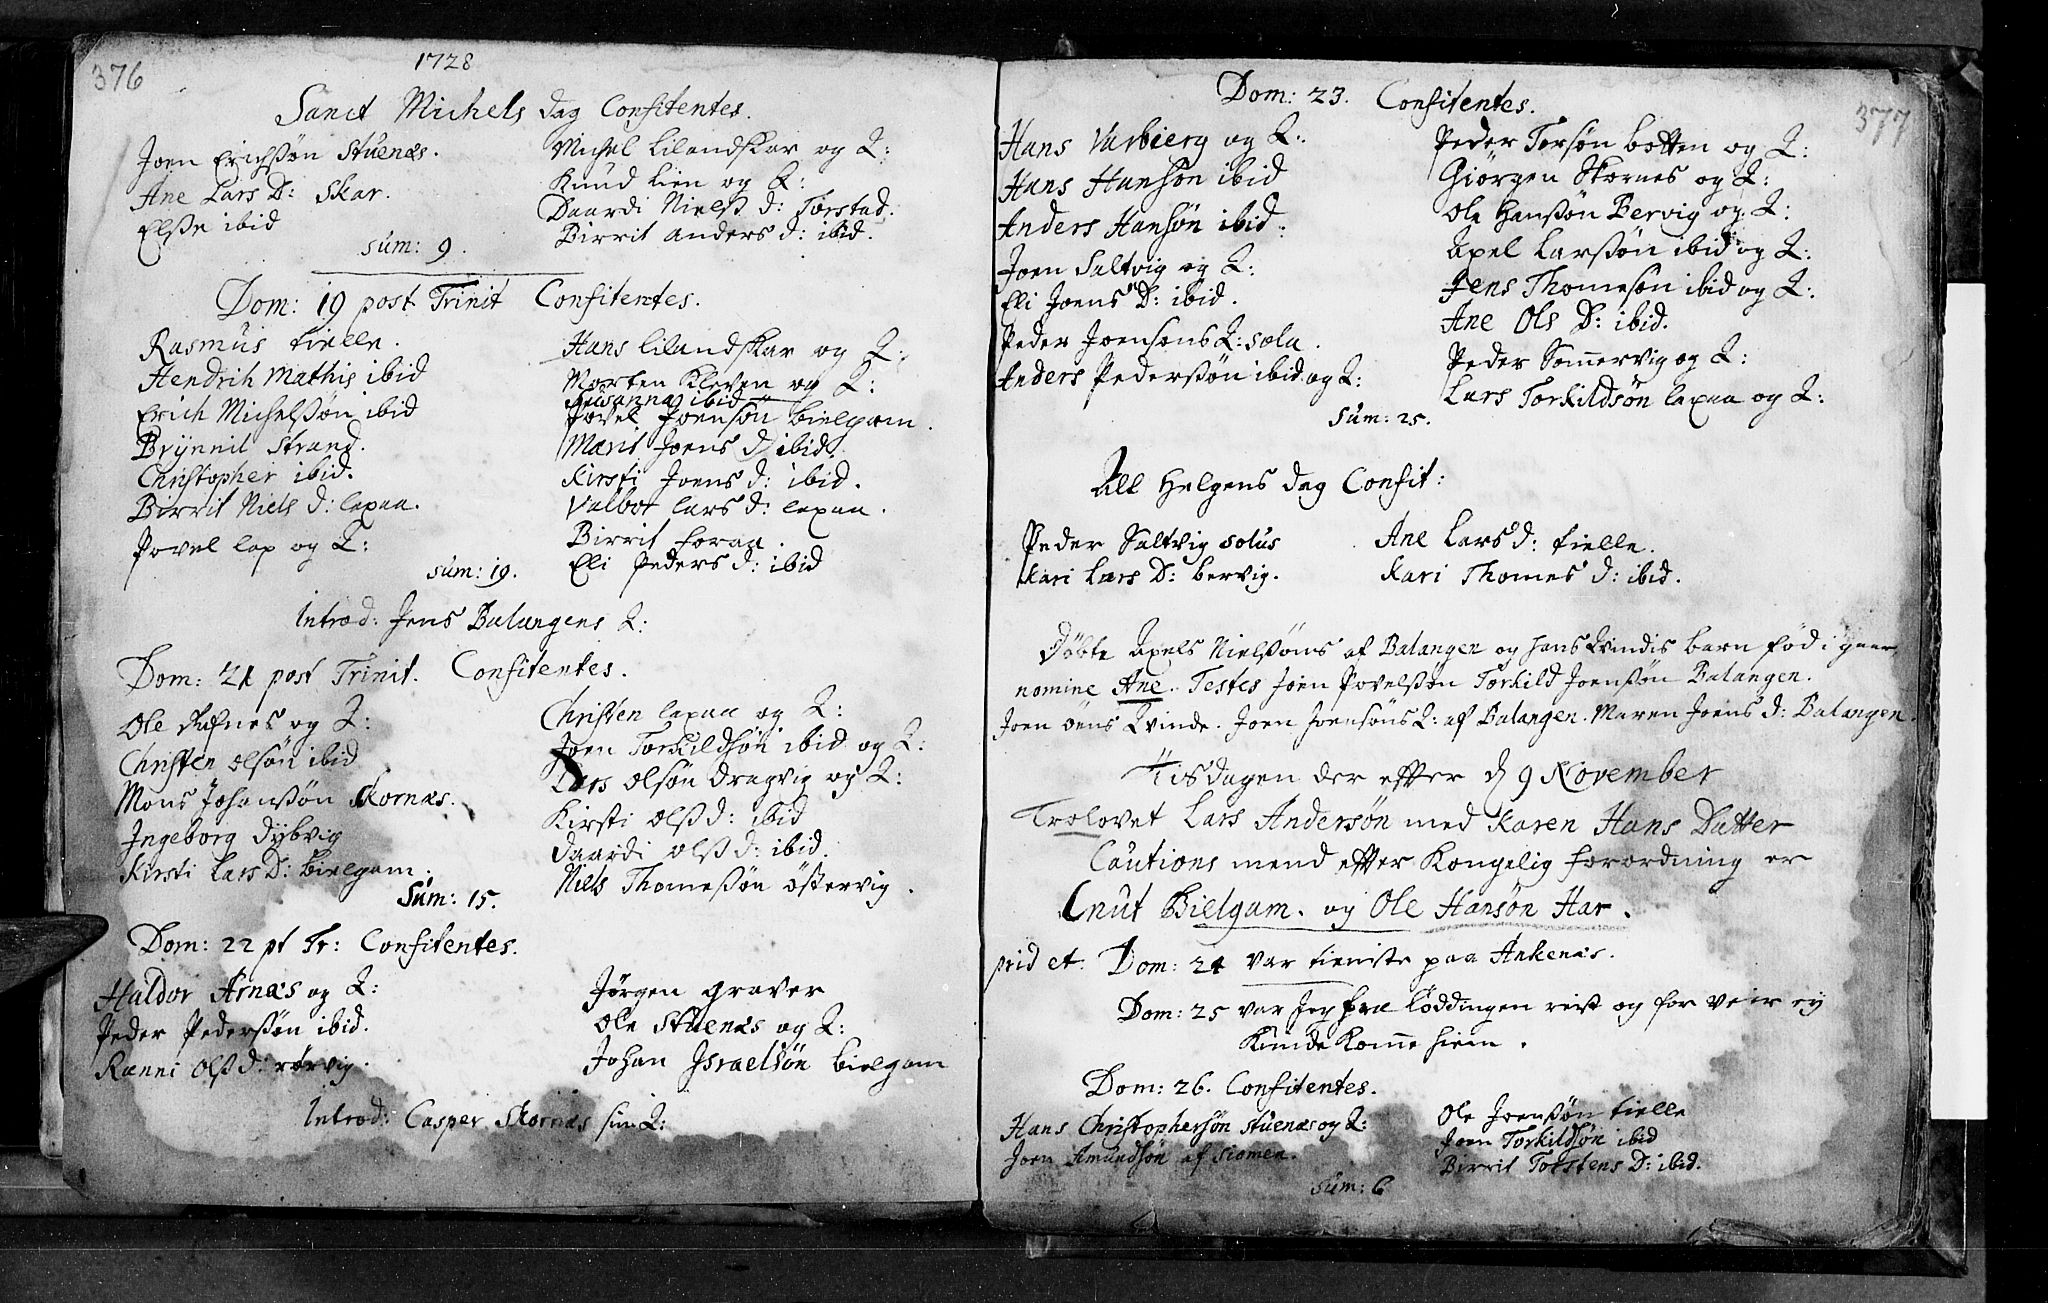 376
1728
Sanct Michels dag Confitentes.
Joen Erichssøn Stuenæs.
Ane Lars D: Skar.
Elsse ibid
Michel Lilandskar og Q:
Knud Lien og Q:
Daardi Nielss d: Torstad.
Birrit Anders d: ibid.
sum: 9.
Dom: 19 post Trinit Confitentes.
Rasmus fielle.
Hendrih Mathis ibid
Erich Michelssøn ibid
Brÿnnil Strand.
Christopher ibid.
Birrit Niels d: lapaa.
Povel lap og Q:
Hans lilandskar og Q:
Morten Kleven og Q:
Susanna ibid
Povel Joensøn bielgam.
Marit Joens d: ibid.
Kirsti Joens d: ibid.
Valbor Lars d: lapaa.
Birrit foraa.
Eli Peders d: ibid
sum: 19.
Introd: Jens Balangens Q:
Dom: 21 post Trinit. Confitentes.
Ole og Q:
Christen olsøn ibid
Mons Johanssøn Skornæs.
Ingeborg Dybvig
Kirsti Lars D: bielgam.
Christen lapaa og Q:
Joen Torkildsøn ibid og Q:
Lars olsøn dragvig og Q:
Kirsti olss d: ibid
daardi olss d: ibid.
Niels Thomessøn östervig.
Sum: 15.
Dom: 22 pt Tr: Confitentes.
Haldor Arnæs og Q:
Peder Pederssøn ibid.
Ranni olss d: rørvig.
Jørgen graver
Ole Stuenæs og Q:
Johan Jsraelsøn bielgam
Introd: Casper Skornæs sin Q:
377
Dom: 23. Confitentes.
Hans Varbierg og Q:
Hans Hansøn ibid
Anders Hansøn ibid.
Joen Saltvig og Q:
Eli Joens D: ibid.
Peder Joensøns Q: sola.
Anders Pederssøn ibid og Q:
Peder Torsøn botten og Q:
Giörgen Skornes og Q:
Ole Hanssøn Bervig og Q:
Axel Larssøn ibid og Q:
Jens Thomesøn ibid og Q:
Ane Ols D: ibid.
Peder Somervig og Q:
Lars Torkildsøn lapaa og Q:
sum: 25.
All Helgens dag Confit:
Peder Saltvig solus
Kari Lars D: bervig.
Ane Lars d: fielle.
Kari Thomes d: ibid.
Döbte Axels Nielssøns af Balangen og hans Qvindis barn fød i gaar
nomine Ane. Testes Joen Povelssøn Torkild Joenssøn Balangen.
Joen öens Qvinde. Joen Joensøns Q: af Balangen. Maren Joens d: Balangen.
Tisdagen der effter d 9 November
Trolovet Lars Andersøn med Karen Hans Datter
Cautions mend effter Kongelig forordning er
Cnut Bielgam. og Ole Hansøn Har.
prid et. Dom: 24 var tieniste paa Ankenæs.
Dom: 25 var Jeg fra löddingen reist og for veir ey
Kunde Komme hiem.
Dom: 26. Confitentes.
Hans Christophersøn Stuenæs og Q:
Joen Amundsøn af siomen.
Ole Joenssøn fielle
Joen Torkildsøn ibid
Birrit Torstens D: ibid.
sum: 6